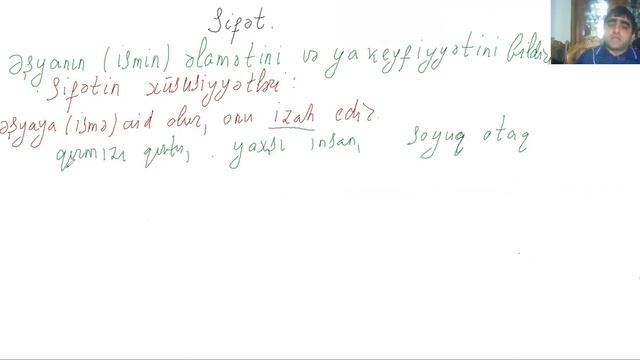 Sifət.
Əşyanın (ismin) əlamətini və ya keyfiyyətini bildir
Sifətin xüsusiyyətləri:
əşyaya (ismə) aid olur, onu izah edir.
qırmızı qutu, yaxşı insan, soyuq otaq